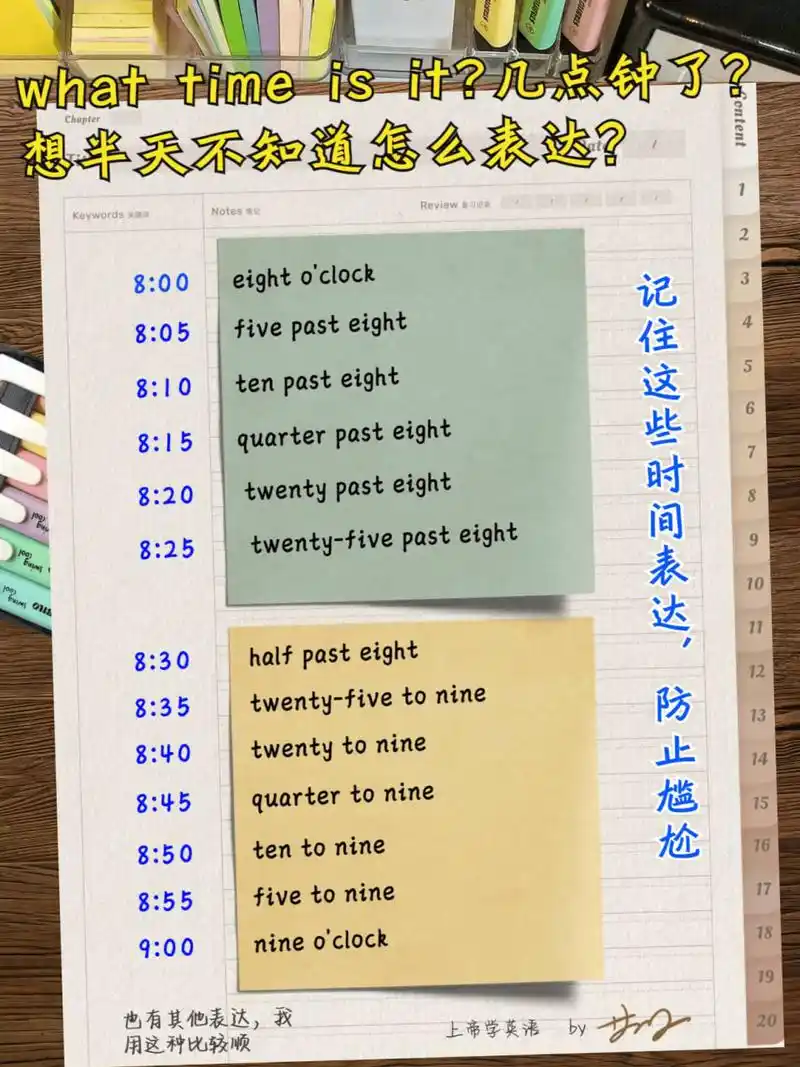 what time is it?几点钟了?
想半天不知道怎么表达?
Chapter
Content
Keywords 关键词
Notes 笔记
Review 复习记录
8:00 eight o'clock
8:05 five past eight
8:10 ten past eight
8:15 quarter past eight
8:20 twenty past eight
8:25 twenty-five past eight
8:30 half past eight
8:35 twenty-five to nine
8:40 twenty to nine
8:45 quarter to nine
8:50 ten to nine
8:55 five to nine
9:00 nine o'clock
记住这些时间表达,防止尴尬
也有其他表达,我
用这种比较顺
上帝学英语 by
1
2
3
4
5
6
7
8
9
10
11
12
13
14
15
16
17
18
19
20